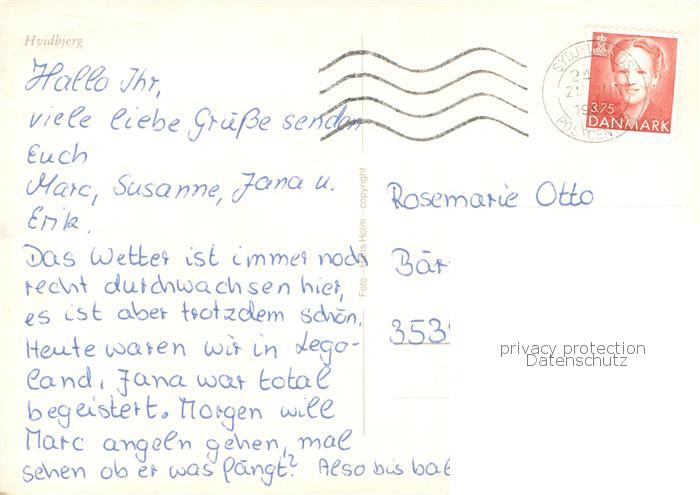 Hvidbjerg
Hallo Ihr,
viele liebe Grüße senden
Euch
Marc, Susanne, Jana u.
Erik.
Das Wetter ist immer noch
recht durchwachsen hier,
es ist aber trotzdem schön.
Heute waren wir in Lego-
land, Jana war total
begeistert. Morgen will
Marc angeln gehen, mal
sehen ob er was fängt? Also bis bal
Foto – Hans Holm – copyright
3.75
DANMARK
Rosemarie Otto
Bär
353
privacy protection
Datenschutz